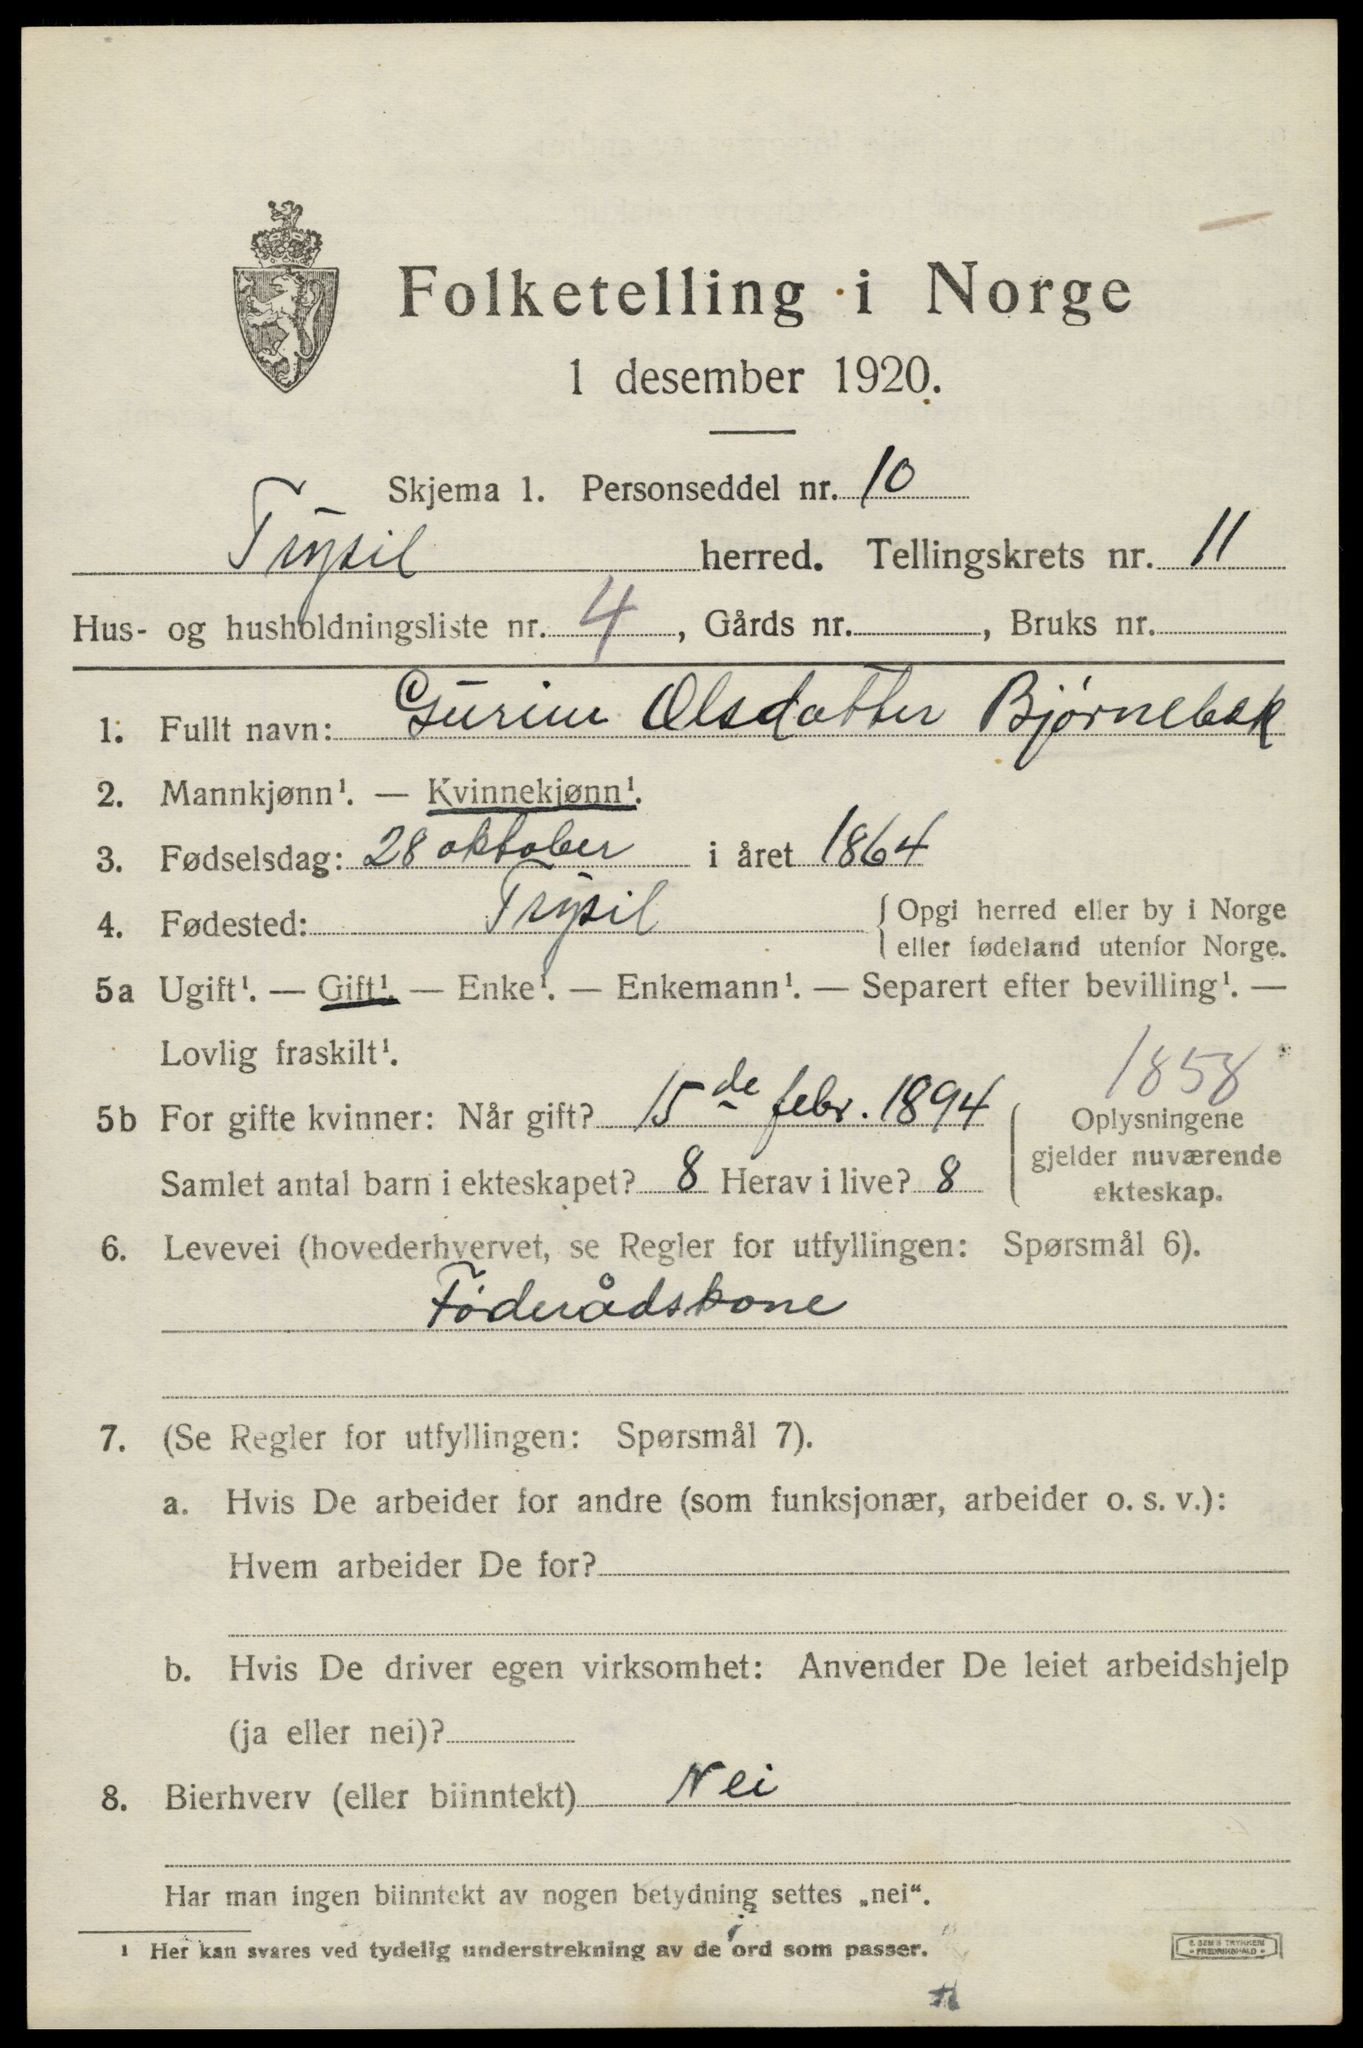 Folketelling i Norge
1 desember 1920.
Skjema 1. Personseddel nr. 10
Trysil herred. Tellingskrets nr. 11
Hus- og husholdningsliste nr. 4, Gårds nr. , Bruks nr.
1. Fullt navn: Gurine Olsdatter Bjørnebek
2. Mannkjønn¹. — Kvinnekjønn¹.
3. Fødselsdag: 28 oktober i året 1864
4. Fødested: Trysil { Opgi herred eller by i Norge
eller fødeland utenfor Norge.
5a Ugift¹. — Gift¹. — Enke¹. — Enkemann¹. — Separert efter bevilling¹. —
Lovlig fraskilt¹.
1858
5b For gifte kvinner: Når gift? 15de febr. 1894
Samlet antal barn i ekteskapet? 8 Herav i live? 8
Oplysningene
gjelder nuværende
ekteskap.
6. Levevei (hovederhvervet, se Regler for utfyllingen: Spørsmål 6).
Föderådskone
7. (Se Regler for utfyllingen: Spørsmål 7).
a. Hvis De arbeider for andre (som funksjonær, arbeider o. s. v.):
Hvem arbeider De for?
b. Hvis De driver egen virksomhet: Anvender De leiet arbeidshjelp
(ja eller nei)?
8. Bierhverv (eller biinntekt) Nei
Har man ingen biinntekt av nogen betydning settes „nei“.
¹ Her kan svares ved tydelig understrekning av de ord som passer.
E. SEM'S TRYKKERI
FREDRIKSHALD